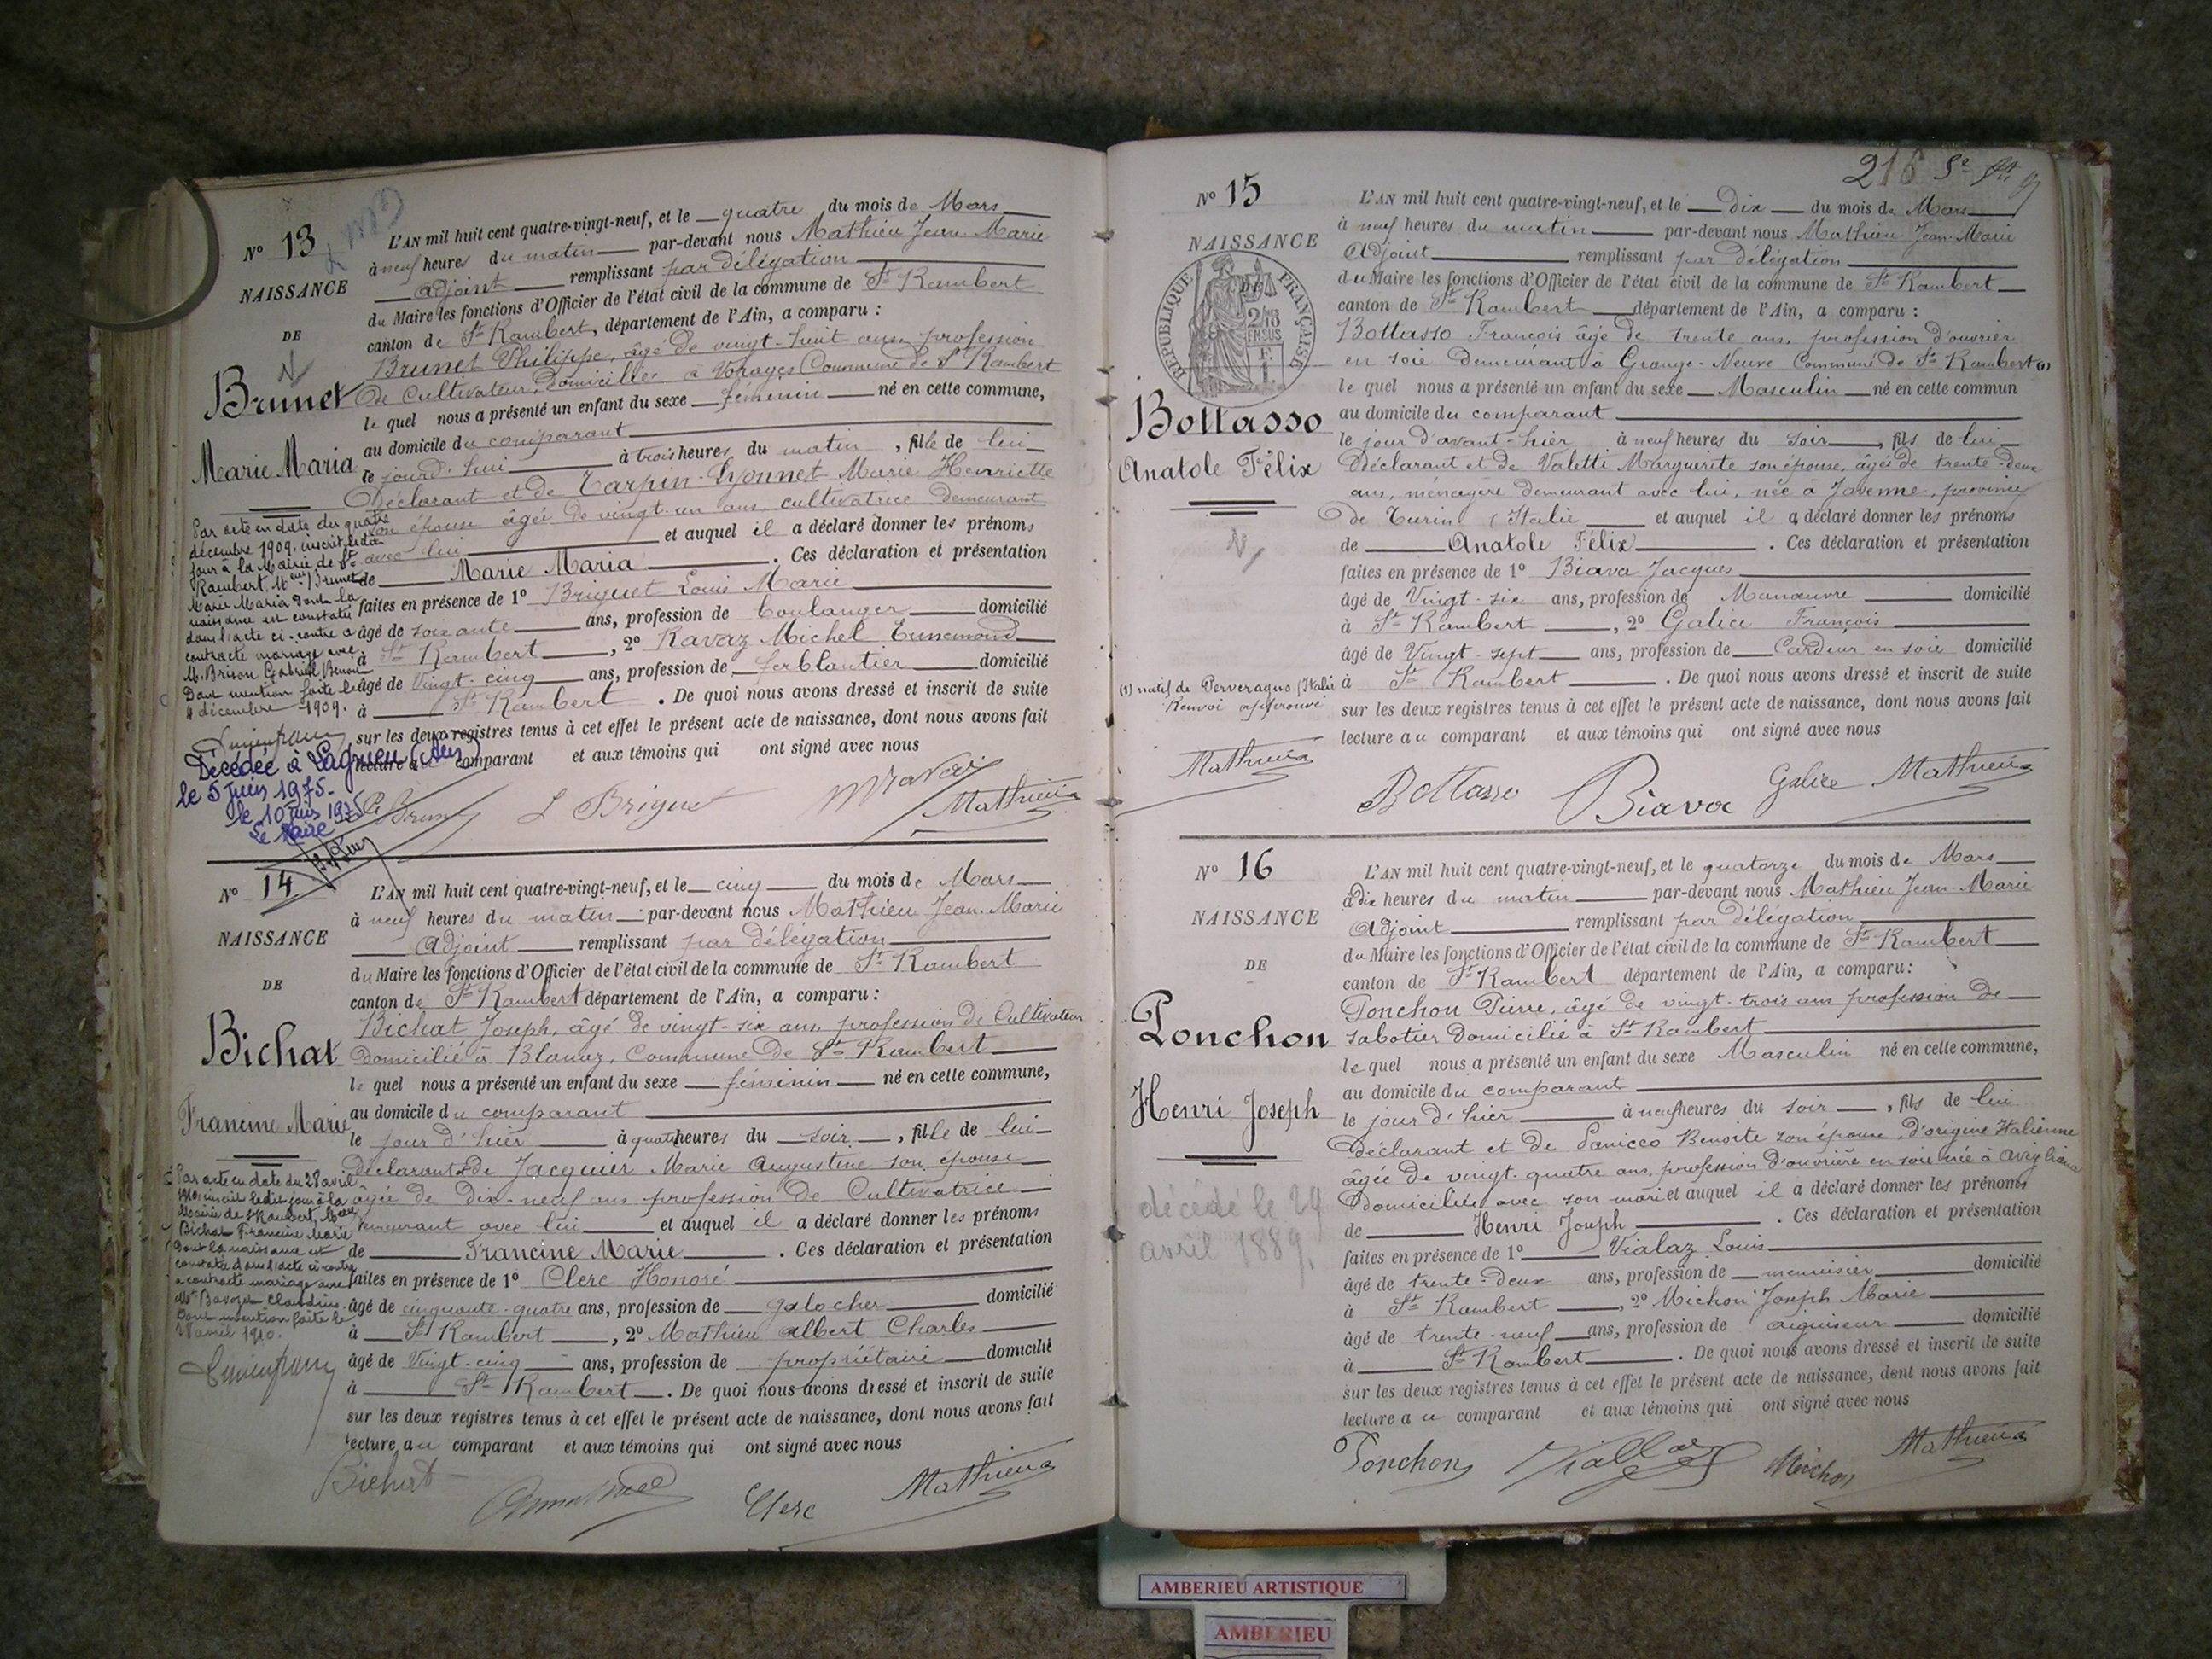 N° 13
NAISSANCE
DE
Brunet
Marie Maria
Par acte en date du quatre
décembre 1909, inscrit le dit
jour à la Mairie de St
Rambert, Brunet
Marie Maria dont la
naissance est constatée
dans l'acte ci-contre a
contracté mariage avec
M. Brison Gabriel Benoit
Dont mention faite le
4 décembre 1909.
Décédée à Lagnieu (Ain)
le 5 juin 1975.
le 10 juin 1975
Le Maire
L'AN mil huit cent quatre-vingt-neuf, et le quatre du mois de Mars
à neuf heures du matin par-devant nous Mathieu Jean Marie
adjoint remplissant par délégation
du Maire les fonctions d'Officier de l'état civil de la commune de St Rambert
canton de St Rambert, département de l'Ain, a comparu :
Brunet Philippe, âgé de vingt-huit ans, profession
de Cultivateur, domicilié à Vorages Commune de St Rambert
lequel nous a présenté un enfant du sexe féminin né en cette commune,
au domicile du comparant
le jourd'hui à trois heures du matin, fille de lui
Déclarant et de Tarpin-Lyonnet Marie Henriette
son épouse âgée de vingt-un ans, cultivatrice demeurant
avec lui et auquel il a déclaré donner les prénoms
de Marie Maria. Ces déclaration et présentation
faites en présence de 1° Briguet Louis Marie
âgé de soixante ans, profession de boulanger domicilié
à St Rambert, 2° Ravaz Michel Eunemond
âgé de Vingt-cinq ans, profession de ferblantier domicilié
à St Rambert. De quoi nous avons dressé et inscrit de suite
sur les deux registres tenus à cet effet le présent acte de naissance, dont nous avons fait
lecture au comparant et aux témoins qui ont signé avec nous
L Briguet Mathieu
N° 14
NAISSANCE
DE
Bichat
Francine Marie
Par acte en date du 28 avril
1910, inscrit le dit jour à la
Mairie de St Rambert, Melle
Bichat Francine Marie
dont la naissance est
constatée dans l'acte ci-contre
a contracté mariage avec
Mr Bavozet Claudius.
Dont mention faite le
28 avril 1910.
L'AN mil huit cent quatre-vingt-neuf, et le cinq du mois de Mars
à neuf heures du matin par-devant nous Mathieu Jean-Marie
adjoint remplissant par délégation
du Maire les fonctions d'Officier de l'état civil de la commune de St Rambert
canton de St Rambert département de l'Ain, a comparu :
Bichat Joseph, âgé de vingt-six ans, profession de Cultivateur
domicilié à Blanaz, Commune de St Rambert
lequel nous a présenté un enfant du sexe féminin né en cette commune,
au domicile du comparant
le jour d'hier à quatre heures du soir, fille de lui
déclarant & de Jacquier Marie Augustine son épouse
âgée de Dix-neuf ans profession de Cultivatrice
demeurant avec lui et auquel il a déclaré donner les prénoms
de Francine Marie. Ces déclaration et présentation
faites en présence de 1° Clerc Honoré
âgé de cinquante-quatre ans, profession de galocher domicilié
à St Rambert, 2° Mathieu Albert Charles
âgé de Vingt-cinq ans, profession de propriétaire domicilié
à St Rambert. De quoi nous avons dressé et inscrit de suite
sur les deux registres tenus à cet effet le présent acte de naissance, dont nous avons fait
lecture au comparant et aux témoins qui ont signé avec nous
Bichat Clerc Mathieu
216
N° 15
NAISSANCE
RÉPUBLIQUE FRANÇAISE
DE
Bottasso
Anatole Félix
(1) natif de Perveragno (Italie
Renvoi approuvé
Mathieu
L'AN mil huit cent quatre-vingt-neuf, et le Dix du mois de Mars
à neuf heures du matin par-devant nous Mathieu Jean-Marie
Adjoint remplissant par délégation
du Maire les fonctions d'Officier de l'état civil de la commune de St Rambert
canton de St Rambert département de l'Ain, a comparu :
Bottasso François âgé de trente ans, profession d'ouvrier
en soie demeurant à Grange-Neuve Commune de St Rambert (1)
lequel nous a présenté un enfant du sexe Masculin né en cette commun
au domicile du comparant
le jour d'avant-hier à neuf heures du soir, fils de lui
déclarant et de Valetti Marguerite son épouse, âgée de trente-deux
ans, ménagère demeurant avec lui, née à Javenne, province
de Turin (Italie et auquel il a déclaré donner les prénoms
de Anatole Félix. Ces déclaration et présentation
faites en présence de 1° Biava Jacques
âgé de Vingt-six ans, profession de Manœuvre domicilié
à St Rambert, 2° Galice François
âgé de Vingt-sept ans, profession de Cardeur en soie domicilié
à St Rambert. De quoi nous avons dressé et inscrit de suite
sur les deux registres tenus à cet effet le présent acte de naissance, dont nous avons fait
lecture au comparant et aux témoins qui ont signé avec nous
Bottasso Biava Galice Mathieu
N° 16
NAISSANCE
DE
Ponchon
Henri Joseph
décédé le 29
avril 1889.
L'AN mil huit cent quatre-vingt-neuf, et le quatorze du mois de Mars
à dix heures du matin par-devant nous Mathieu Jean-Marie
Adjoint remplissant par délégation
du Maire les fonctions d'Officier de l'état civil de la commune de St Rambert
canton de St Rambert département de l'Ain, a comparu :
Ponchon Pierre, âgé de vingt-trois ans profession de
sabotier domicilié à St Rambert
lequel nous a présenté un enfant du sexe Masculin né en cette commune,
au domicile du comparant
le jour d'hier à neuf heures du soir, fils de lui
Déclarant et de Panicco Benoite son épouse, d'origine Italienne
âgée de vingt-quatre ans, profession d'ouvrière en soie née à Avigliana
Domiciliée avec son mari et auquel il a déclaré donner les prénoms
de Henri Joseph. Ces déclaration et présentation
faites en présence de 1° Vialaz Louis
âgé de trente-deux ans, profession de menuisier domicilié
à St Rambert, 2° Michon Joseph Marie
âgé de trente-neuf ans, profession de aiguiseur domicilié
à St Rambert. De quoi nous avons dressé et inscrit de suite
sur les deux registres tenus à cet effet le présent acte de naissance, dont nous avons fait
lecture au comparant et aux témoins qui ont signé avec nous
Ponchon Michon Mathieu
AMBERIEU ARTISTIQUE
AMBERIEU